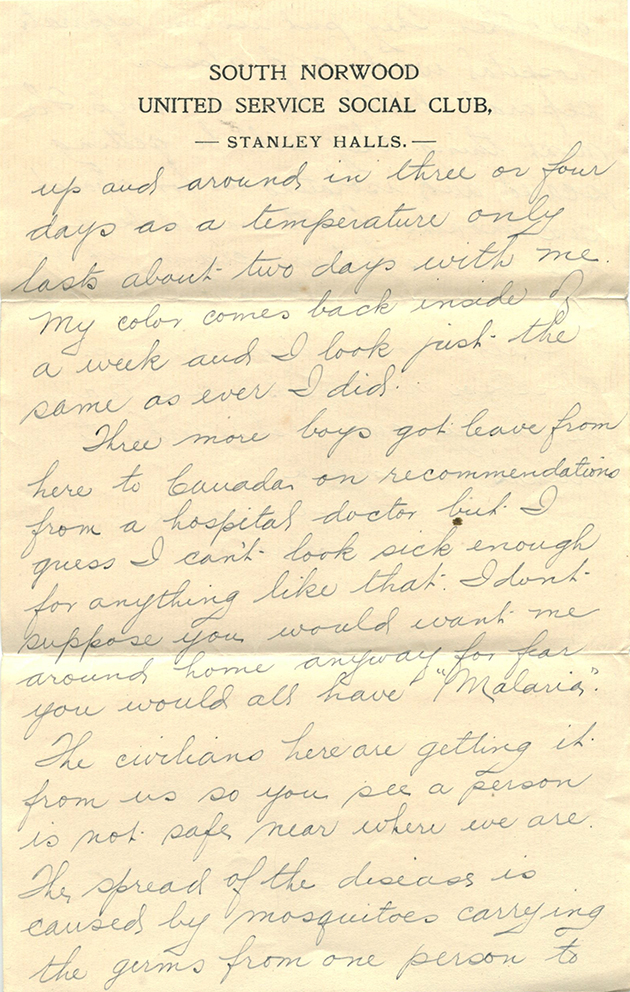 SOUTH NORWOOD
UNITED SERVICE SOCIAL CLUB,
— STANLEY HALLS. —
up and around in three or four
days as a temperature only
lasts about two days with me.
My color comes back inside of
a week and I look just the
same as ever I did.
Three more boys got leave from
here to Canada on recommendations
from a hospital doctor but I
guess I can't look sick enough
for anything like that. I dont
suppose you would want me
around home anyway for fear
you would all have "Malaria".
The civilians here are getting it
from us so you see a person
is not safe near where we are.
The spread of the disease is
caused by mosquitoes carrying
the germs from one person to